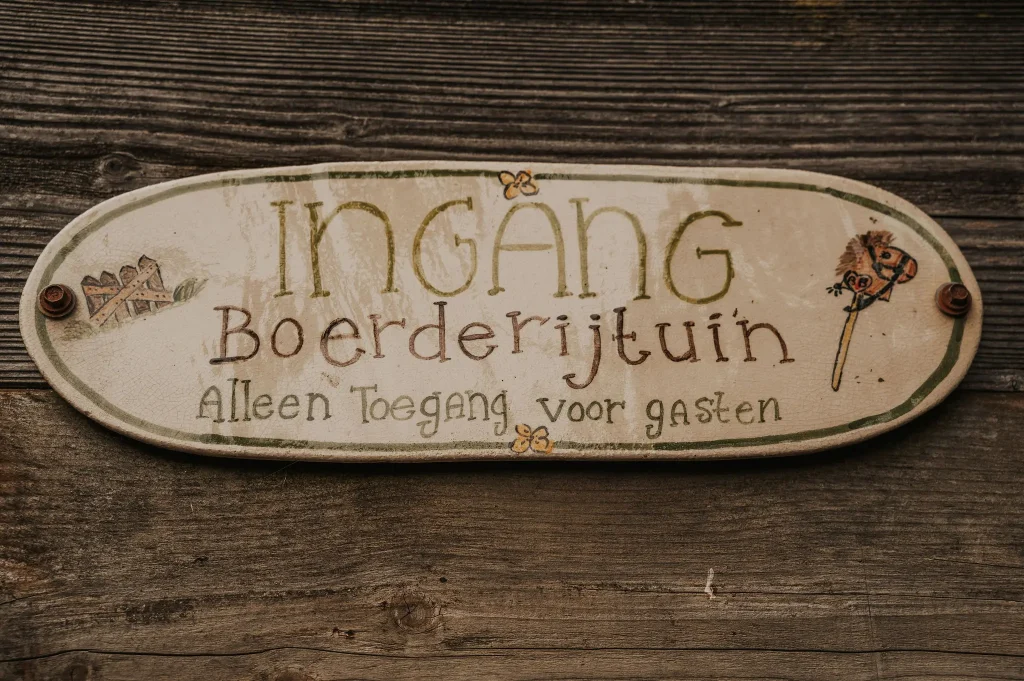 INGANG
Boerderijtuin
Alleen Toegang voor gasten